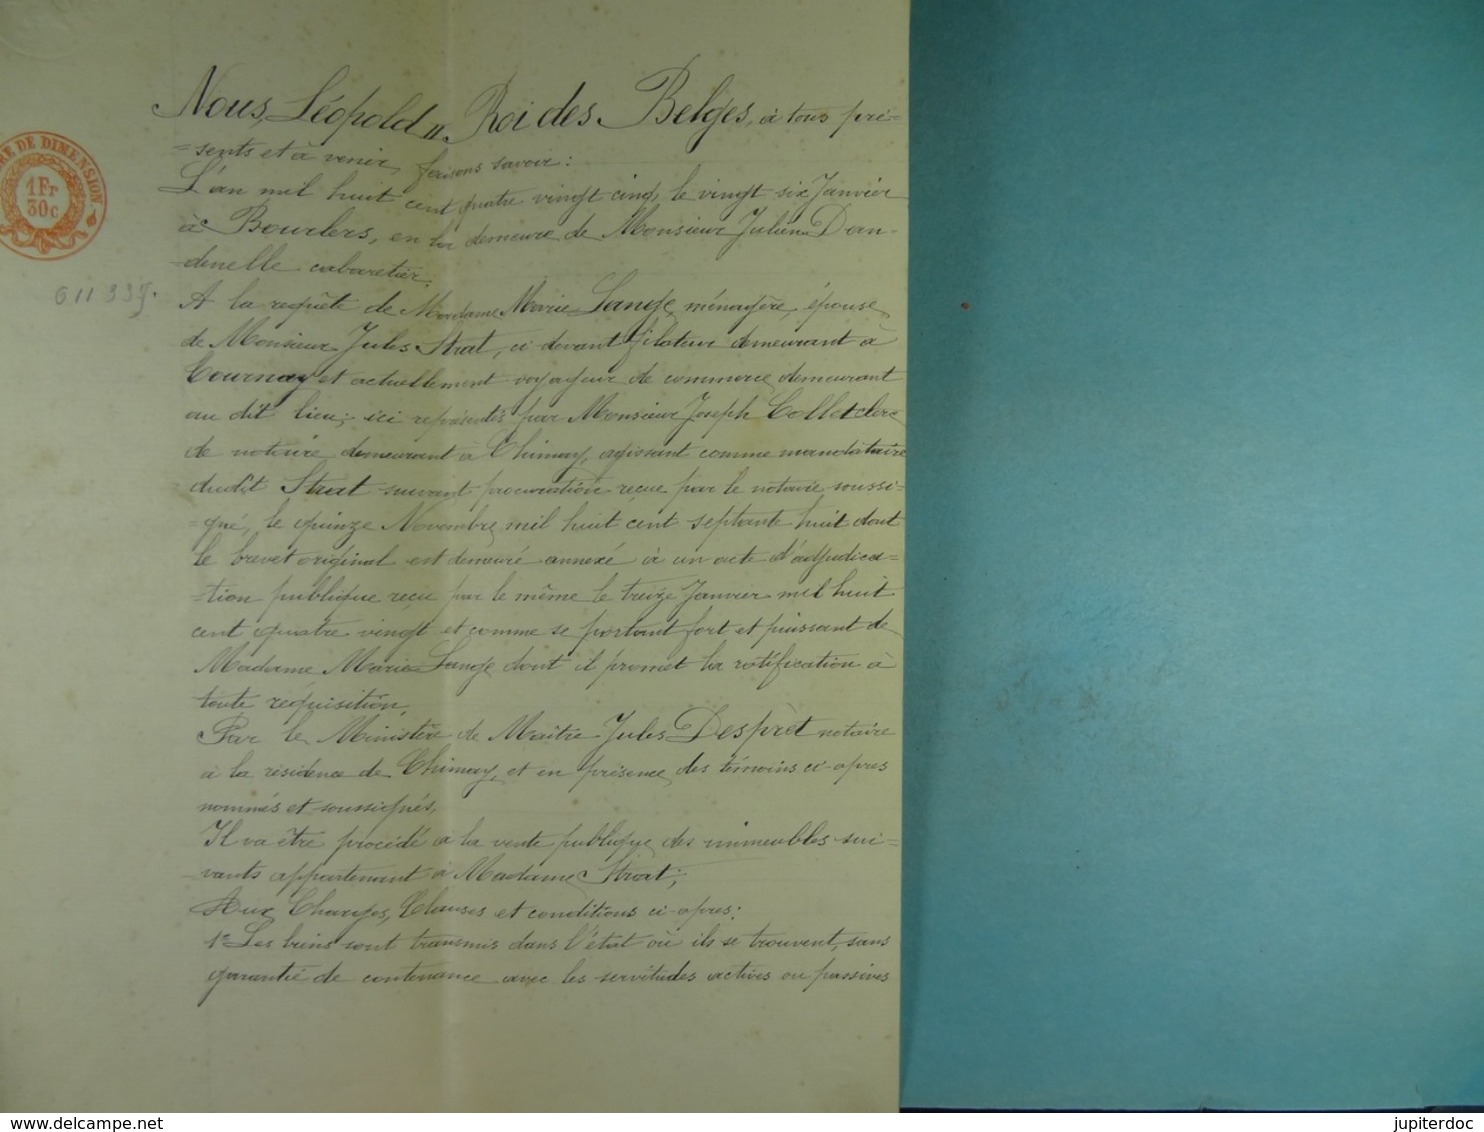 Nous, Léopold II Roi des Belges, à tous pré=
=sents et à venir, faisons savoir:
L'an mil huit cent quatre vingt cinq, le vingt six Janvier
à Bourlers, en la demeure de Monsieur Julien Dan-
-dinelle cabaretier.
A la requête de Madame Marie Lange, ménagère, épouse
de Monsieur Jules Strat, ci devant filateur demeurant à
et actuellement voyageur de commerce, demeurant
au dit lieu; ici représentés par Monsieur Joseph Collet clerc
de notaire demeurant à Chimay, agissant comme mandataire
dudit Strat suivant procuration reçue par le notaire soussi-
-gné, le quinze Novembre mil huit cent septante huit dont
le brevet original est demeuré annexé à un acte d'adjudica-
-tion publique reçu par le même le treize Janvier mil huit
cent quatre vingt et comme se portant fort et puissant de
Madame Marie Lange dont il promet la ratification à
toute réquisition.
Par le Ministère de Maître Jules Desprèt notaire
à la résidence de Chimay, et en présence des témoins ci-après
nommés et soussignés,
Il va être procédé à la vente publique des immeubles sui-
-vants appartenant à Madame Strat;
Aux Charges, Clauses et conditions ci-après:
1° Les biens sont transmis dans l'état où ils se trouvent, sans
garantie de contenance avec les servitudes actives ou passives
RE DE DIMENSION
1 Fr
30 c
delcampe.net
jupiterdoc